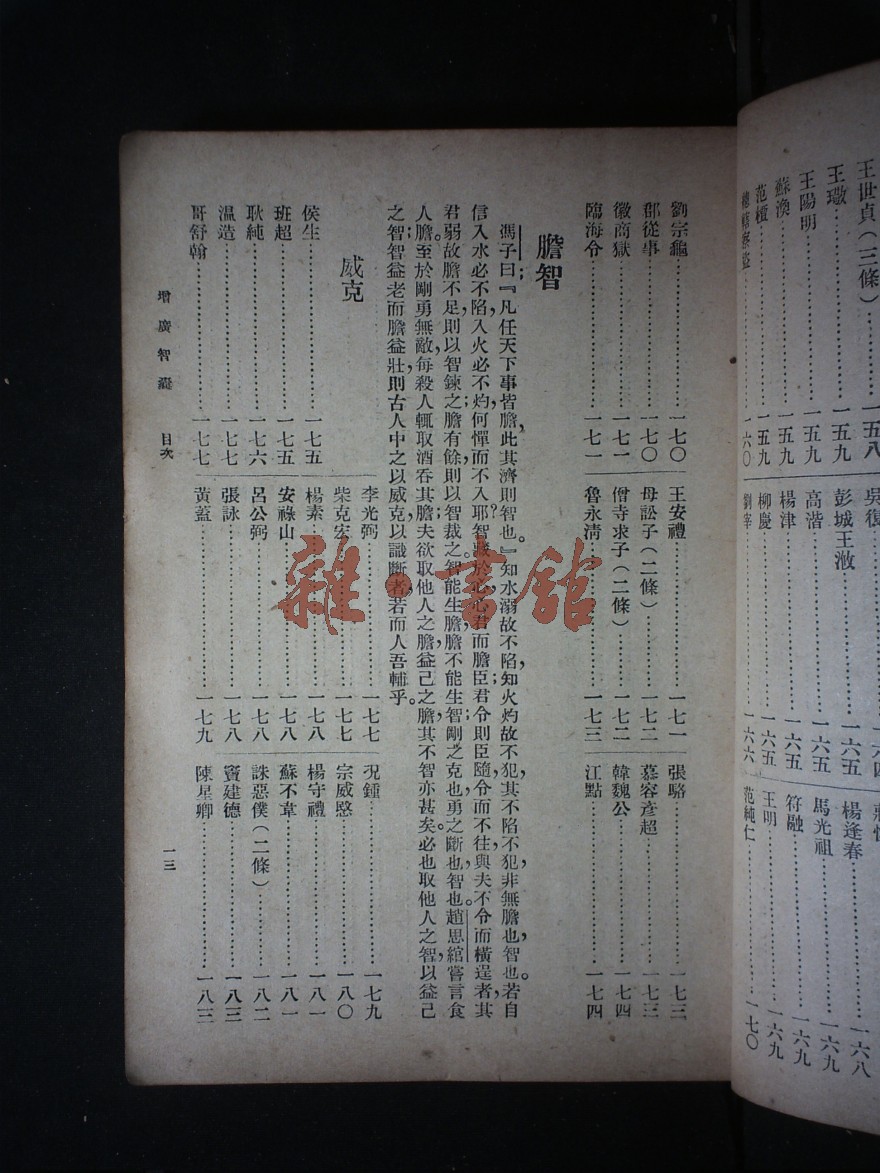 王世貞（三條）……一五八
王璥……一五九
王陽明……一五九
蘇渙……一五九
范檟……一五九
一六〇
吳復
彭城王浟……一六五
高湝……一六五
楊津……一六五
柳慶……一六五
劉宰……一六六
楊逢春……一六八
馬光祖……一六九
符融……一六九
王明……一六九
范純仁……一七〇
劉宗龜……一七〇
郡從事……一七〇
徽商獄……一七一
臨海令……一七一
王安禮……一七一
母訟子（二條）……一七二
僧寺求子（二條）……一七二
魯永清……一七三
張駱……一七三
慕容彥超……一七三
韓魏公……一七四
江點……一七四
膽智
馮子曰：『凡任天下事皆膽，此其濟則智也。』知水溺故不陷，知火灼故不犯，其不陷不犯，非無膽也，智也。若自
信入水必不陷，入火必不灼，何憚而不入耶？智藏於心，心君而膽臣，君令則臣隨，令而不往，與夫不令而橫逞者，其
君弱。故膽不足則以智鍊之，膽有餘則以智裁之。智能生膽，膽不能生智。剛之克也，勇之斷也，智也。趙思綰嘗言食
人膽至於剛勇無敵，每殺人輒取酒吞其膽。夫欲取他人之膽，益己之膽，其不智亦甚矣。必也取他人之智，以益己
之智，智益老而膽益壯，則古人中之以威克，以識斷者，若而人，吾輔乎。
威克
侯生……一七五
班超……一七五
耿純……一七六
溫造……一七七
哥舒翰……一七七
李光弼……一七七
柴克宏……一七七
楊素……一七八
安祿山……一七八
呂公弼……一七八
張詠……一七八
黃蓋……一七九
況鍾……一七九
宗威愍……一八〇
楊守禮……一八一
蘇不韋……一八一
誅惡僕（二條）……一八二
竇建德……一八三
陳星卿……一八三
增廣智囊　目次
一三
雜·書館